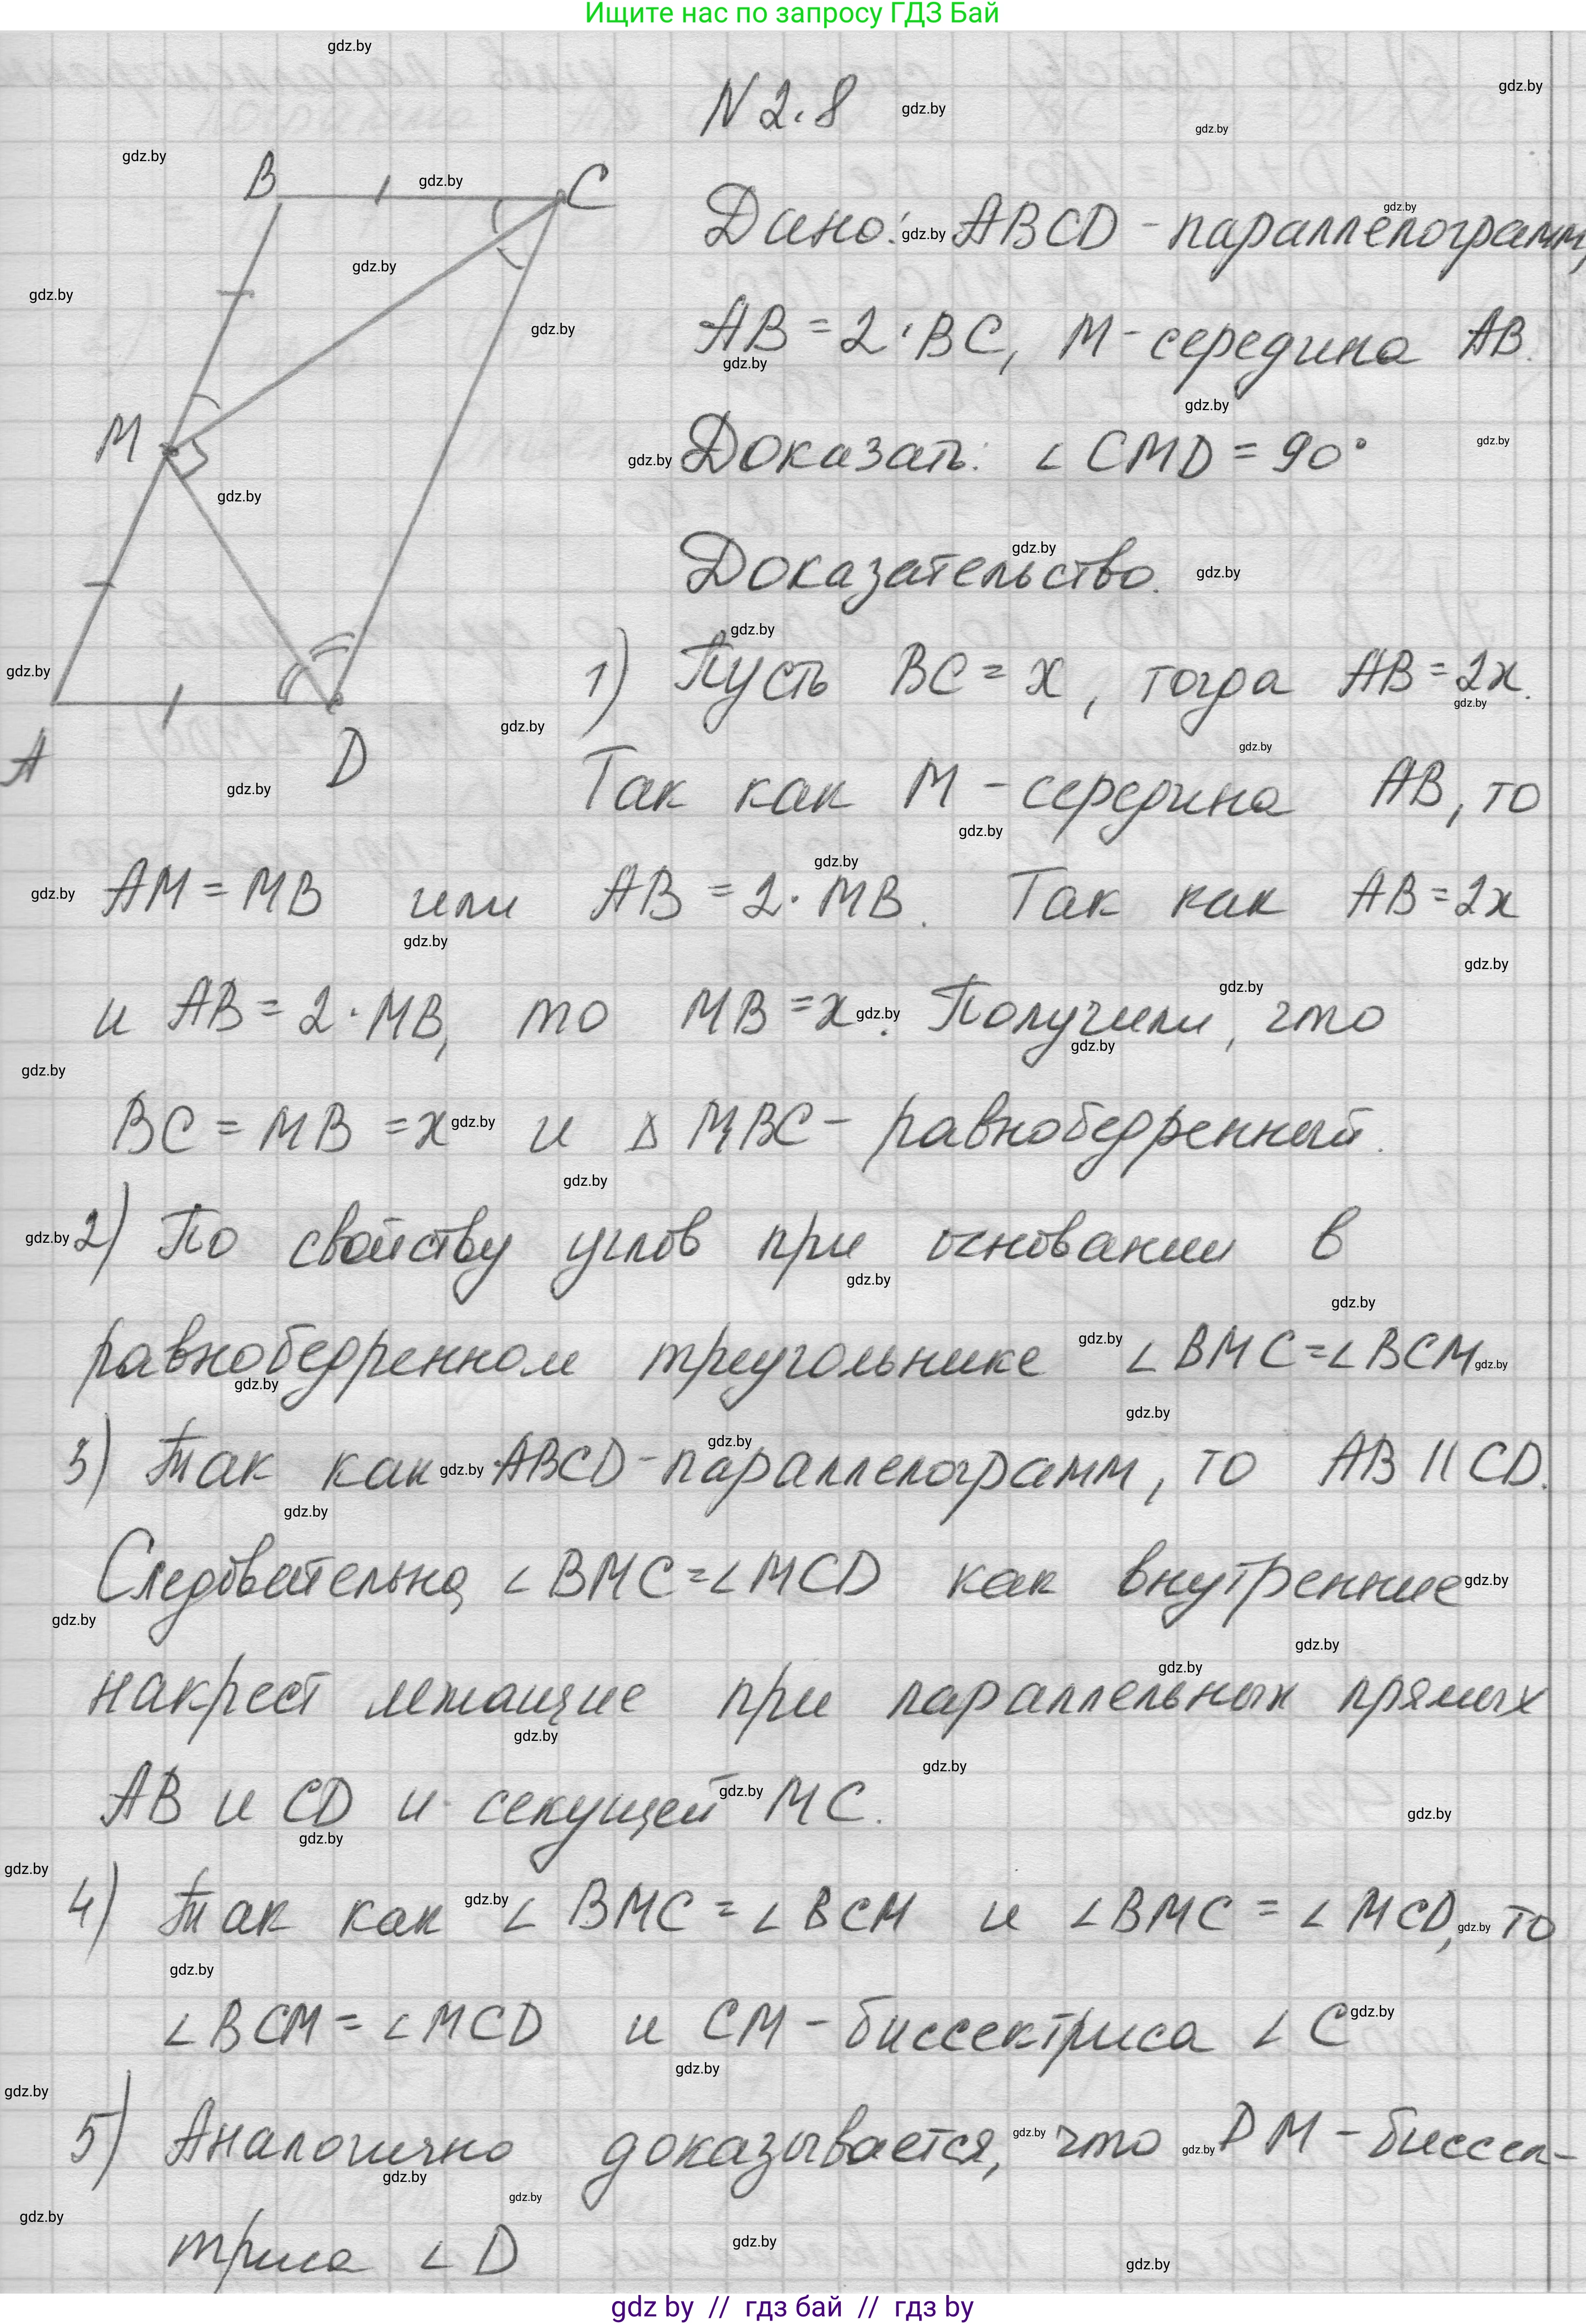 Ищите нас по запросу ГДЗ Бай
N 2.8
Дано: ABCD - параллелограмм,
AB = 2·BC, M - середина AB.
Доказать: ∠CMD = 90°
Доказательство.
1) Пусть BC = x, тогда AB = 2x.
Так как M - середина AB, то
AM = MB или AB = 2·MB. Так как AB = 2x
и AB = 2·MB, то MB = x. Получили, что
BC = MB = x и △MBC - равнобедренный.
2) По свойству углов при основании в
равнобедренном треугольнике ∠BMC = ∠BCM
3) Так как ABCD - параллелограмм, то AB || CD.
Следовательно, ∠BMC = ∠MCD как внутренние
накрест лежащие при параллельных прямых
AB и CD и секущей MC.
4) Так как ∠BMC = ∠BCM и ∠BMC = ∠MCD, то
∠BCM = ∠MCD и CM - биссектриса ∠C
5) Аналогично доказывается, что DM - биссек-
триса ∠D
B
C
M
A
D
gdz.by
gdz by // гдз бай // гдз by